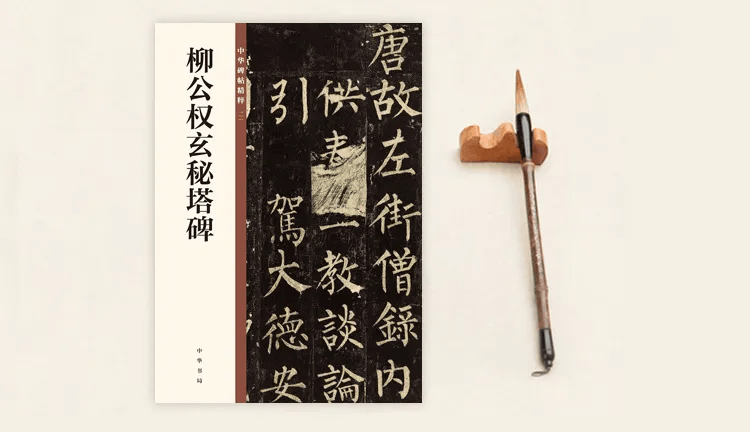 柳公权玄秘塔碑
中华书局
中华碑帖精粹
唐故左街僧錄内
供奉
一教談論
引
駕大德安